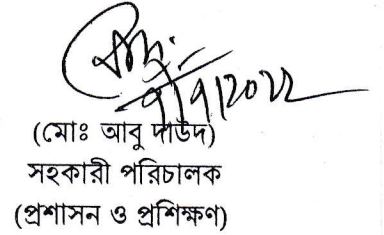 ৭/৭/২০২২
(মোঃ আবু দাউদ)
সহকারী পরিচালক
(প্রশাসন ও প্রশিক্ষণ)